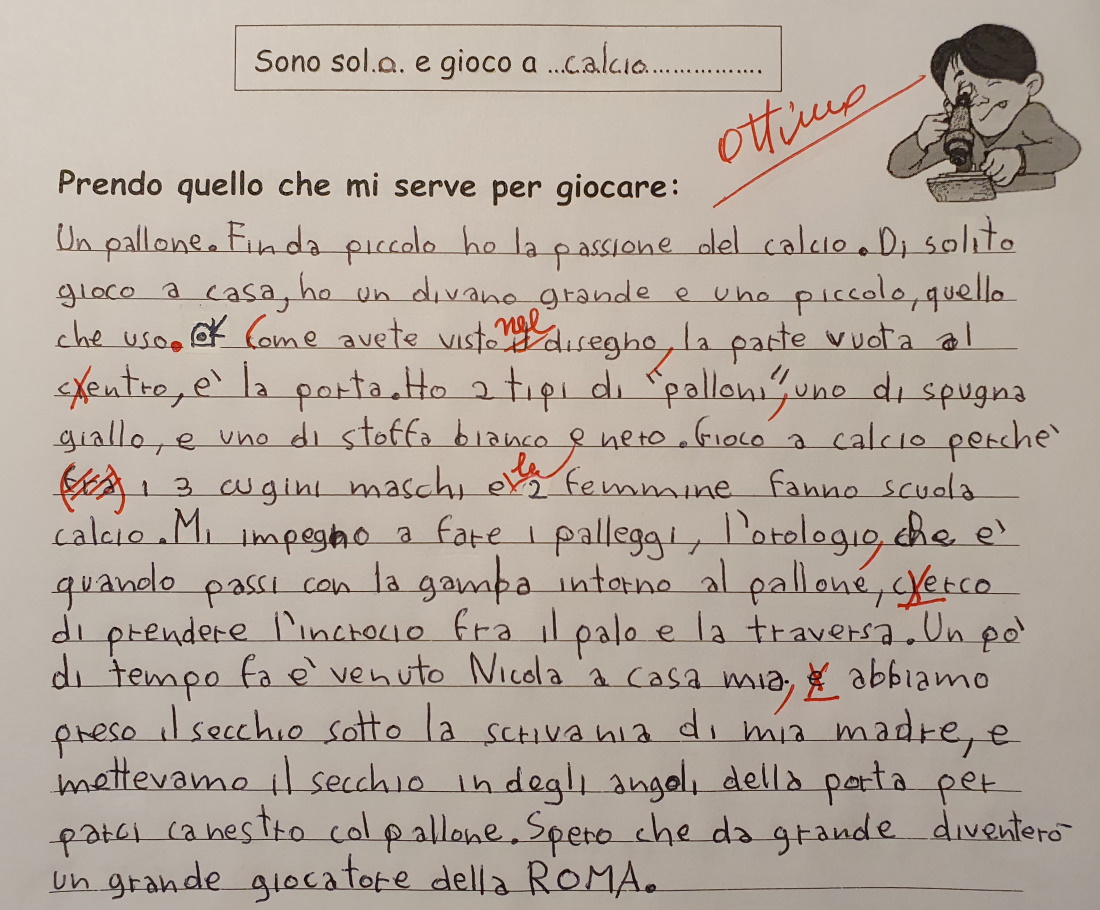 Sono sol.o. e gioco a ...calcio................
ottimo
Prendo quello che mi serve per giocare:
Un pallone. Fin da piccolo ho la passione del calcio. Di solito
gioco a casa, ho un divano grande e uno piccolo, quello
che uso. Come avete visto nel disegno, la parte vuota al
centro, è la porta. Ho 2 tipi di "palloni", uno di spugna
giallo, e uno di stoffa bianco e nero. Gioco a calcio perchè
i 3 cugini maschi e le 2 femmine fanno scuola
calcio. Mi impegno a fare i palleggi, l'orologio, che è
quando passi con la gamba intorno al pallone, cerco
di prendere l'incrocio fra il palo e la traversa. Un pò
di tempo fa è venuto Nicola a casa mia, abbiamo
preso il secchio sotto la scrivania di mia madre, e
mettevamo il secchio in degli angoli della porta per
farci canestro col pallone. Spero che da grande diventerò
un grande giocatore della ROMA.